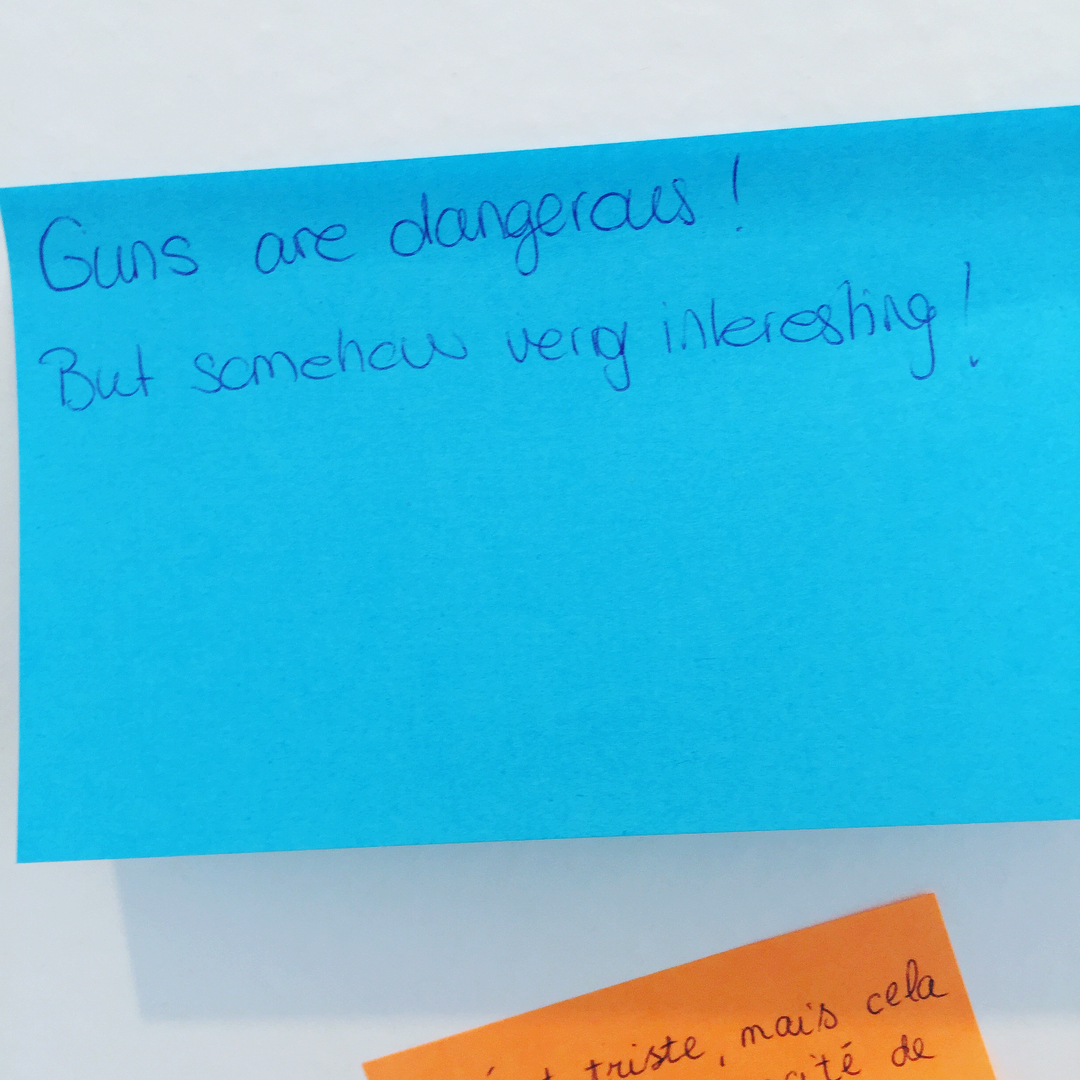 Guns are dangerous!
But somehow very interesting!
triste, mais cela
de